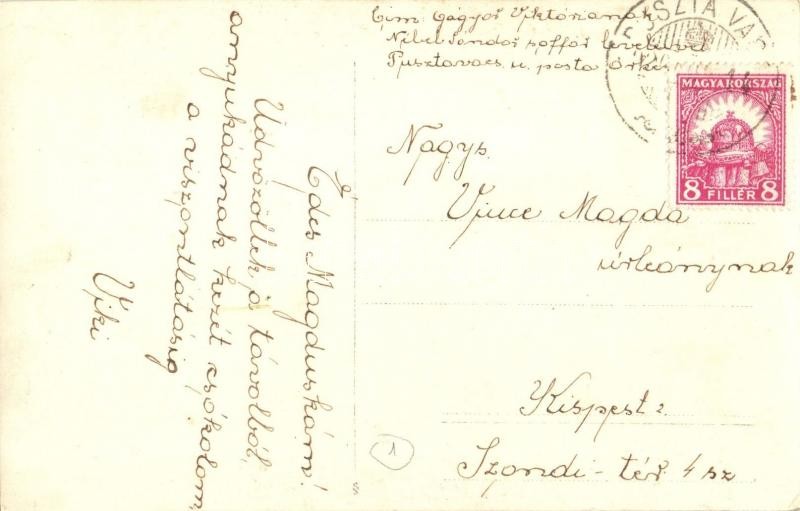 Cim: Gágyor Viktóriának
Nibel Sándor soffőr levelével
Pusztavacs u. posta Örké
PUSZTAVA
MAGYARORSZÁG
8 FILLÉR 8
Nagys.
Vince Magda
úrleánynak
Kispest 2.
Szondi-tér 4 sz
1
Édes Magduskám!
Üdvözöllek a távolból,
anyukádnak kezét csókolom,
a viszontlátásig
Viki